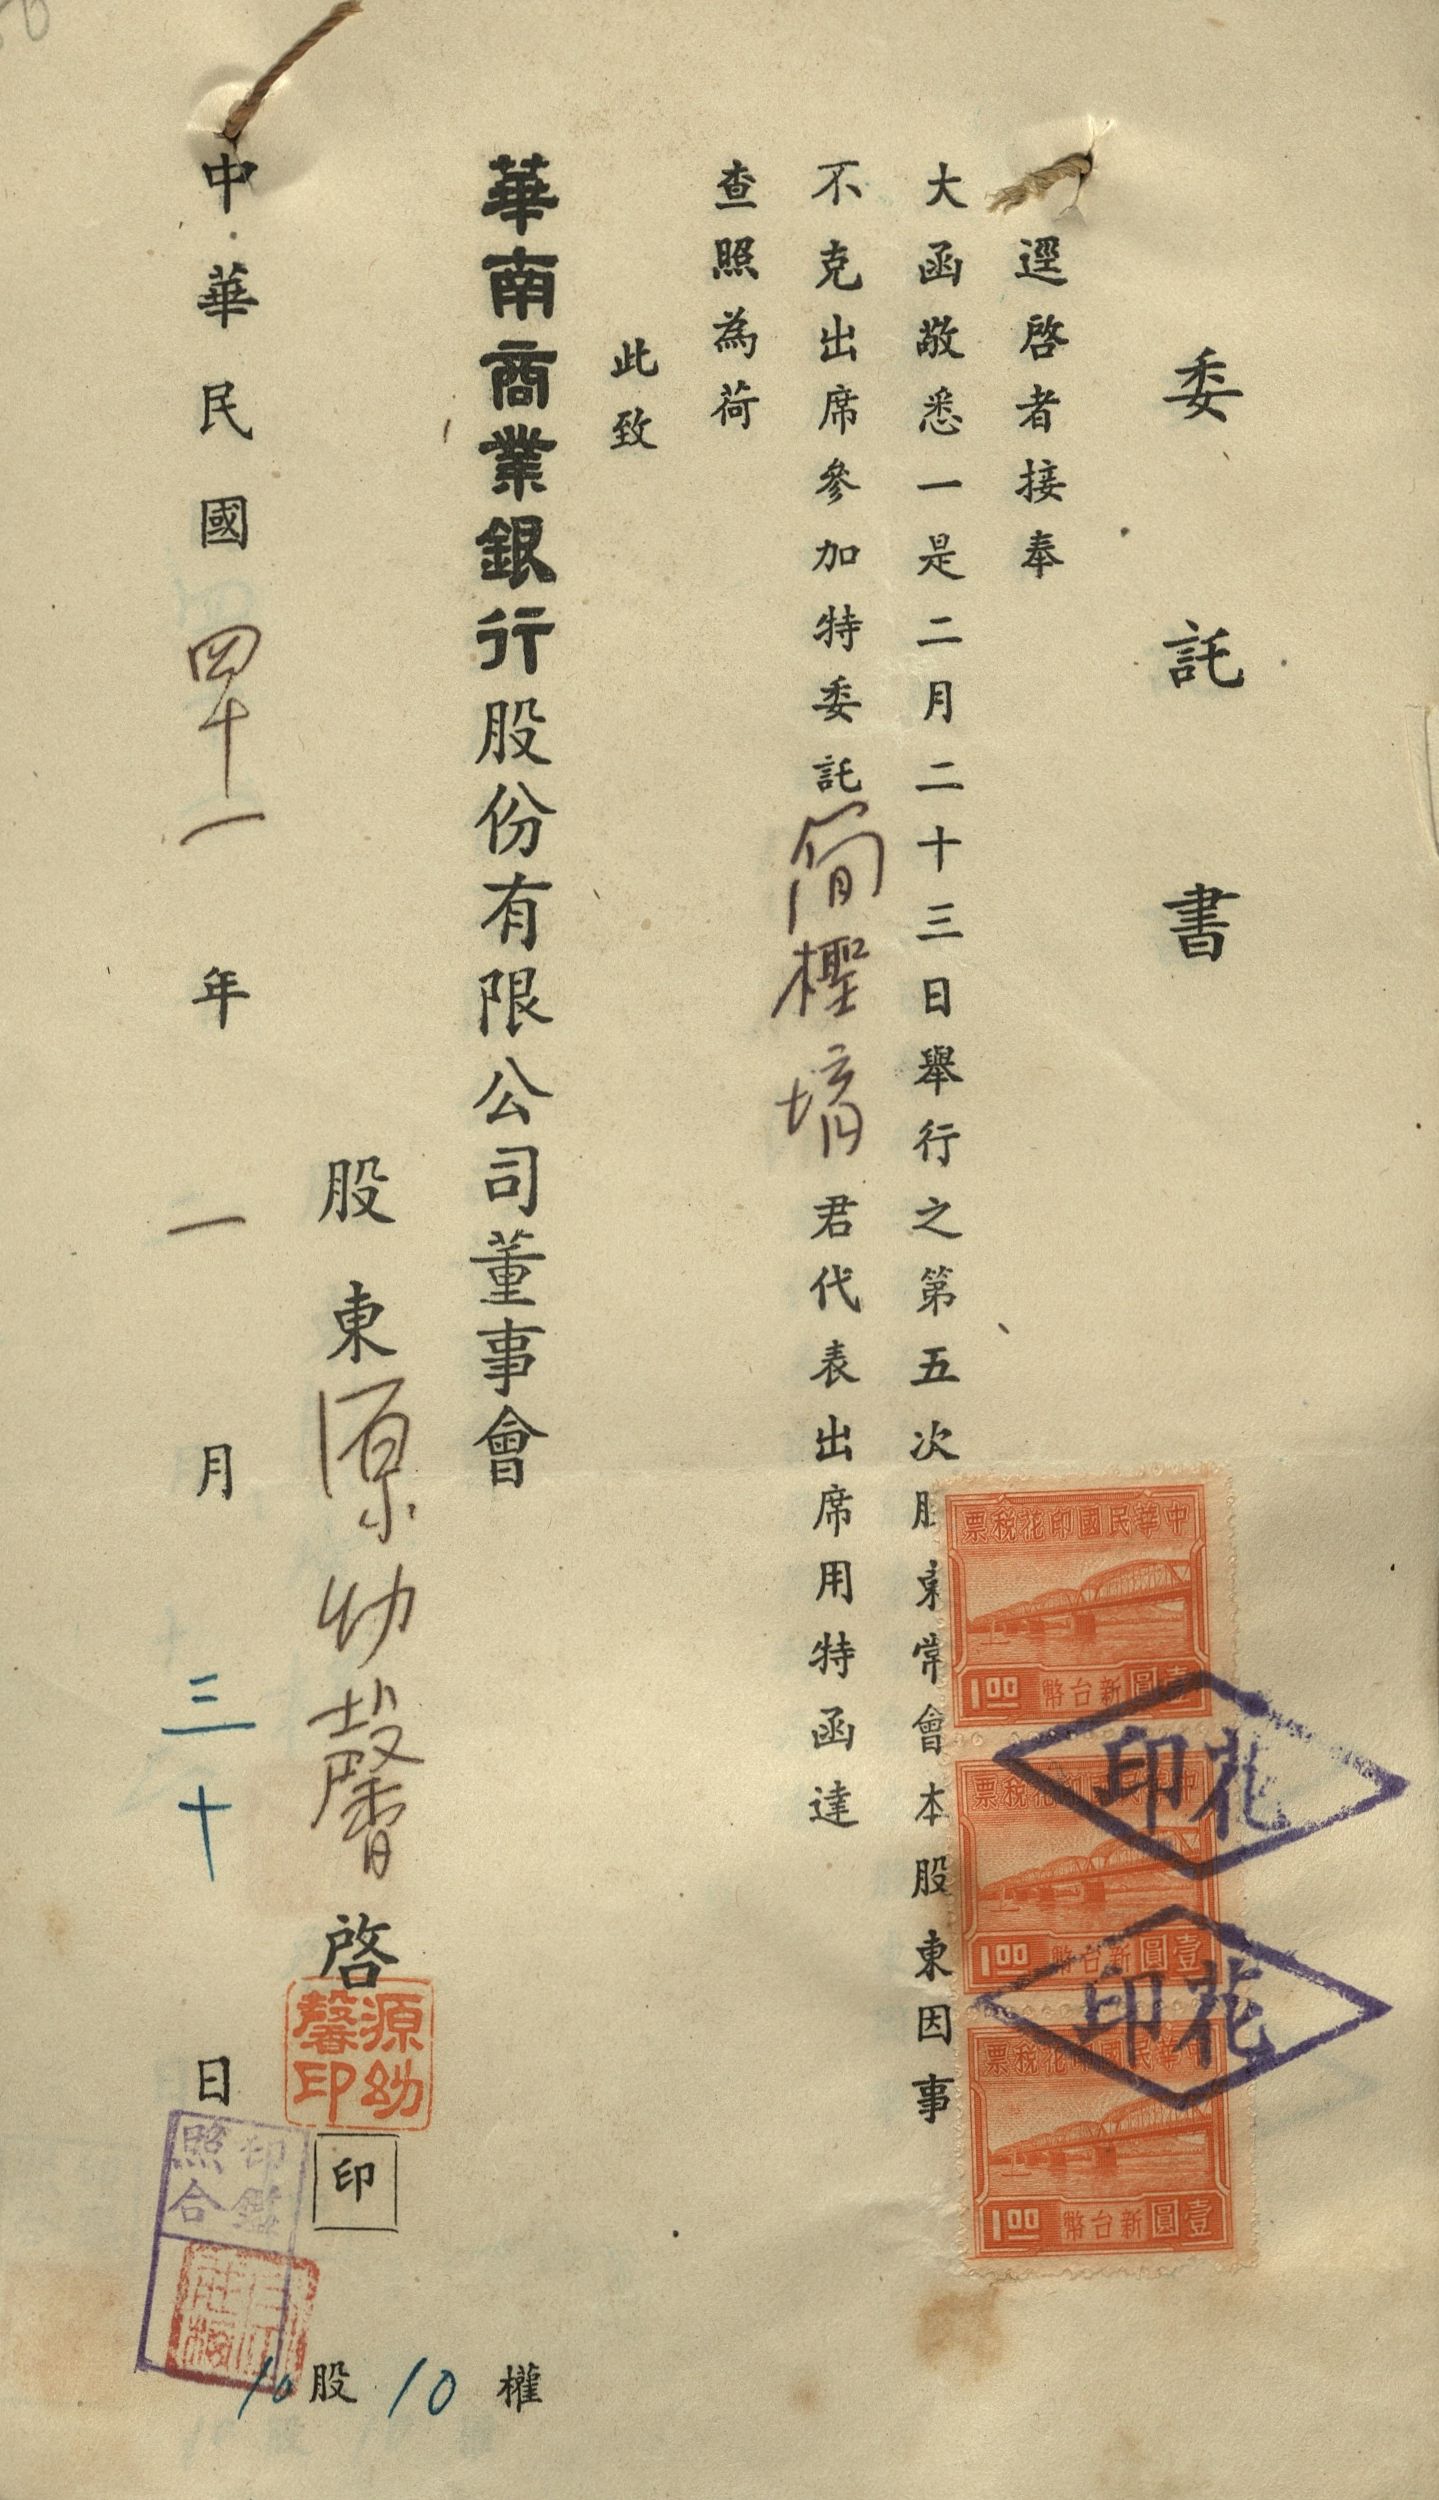 委託書
逕啓者接奉
大函敬悉一是二月二十三日舉行之第五次股東常會本股東因事
不克出席參加特委託簡檉堉君代表出席用特函達
查照為荷
此致
華南商業銀行股份有限公司董事會
股東源幼馨啓
源幼馨印
印
10股10權
中華民國四十一年一月三十日
印鑑照合
中華民國印花稅票
壹圓新台幣 1.00
花印
中華民國印花稅票
壹圓新台幣 1.00
花印
中華民國印花稅票
壹圓新台幣 1.00